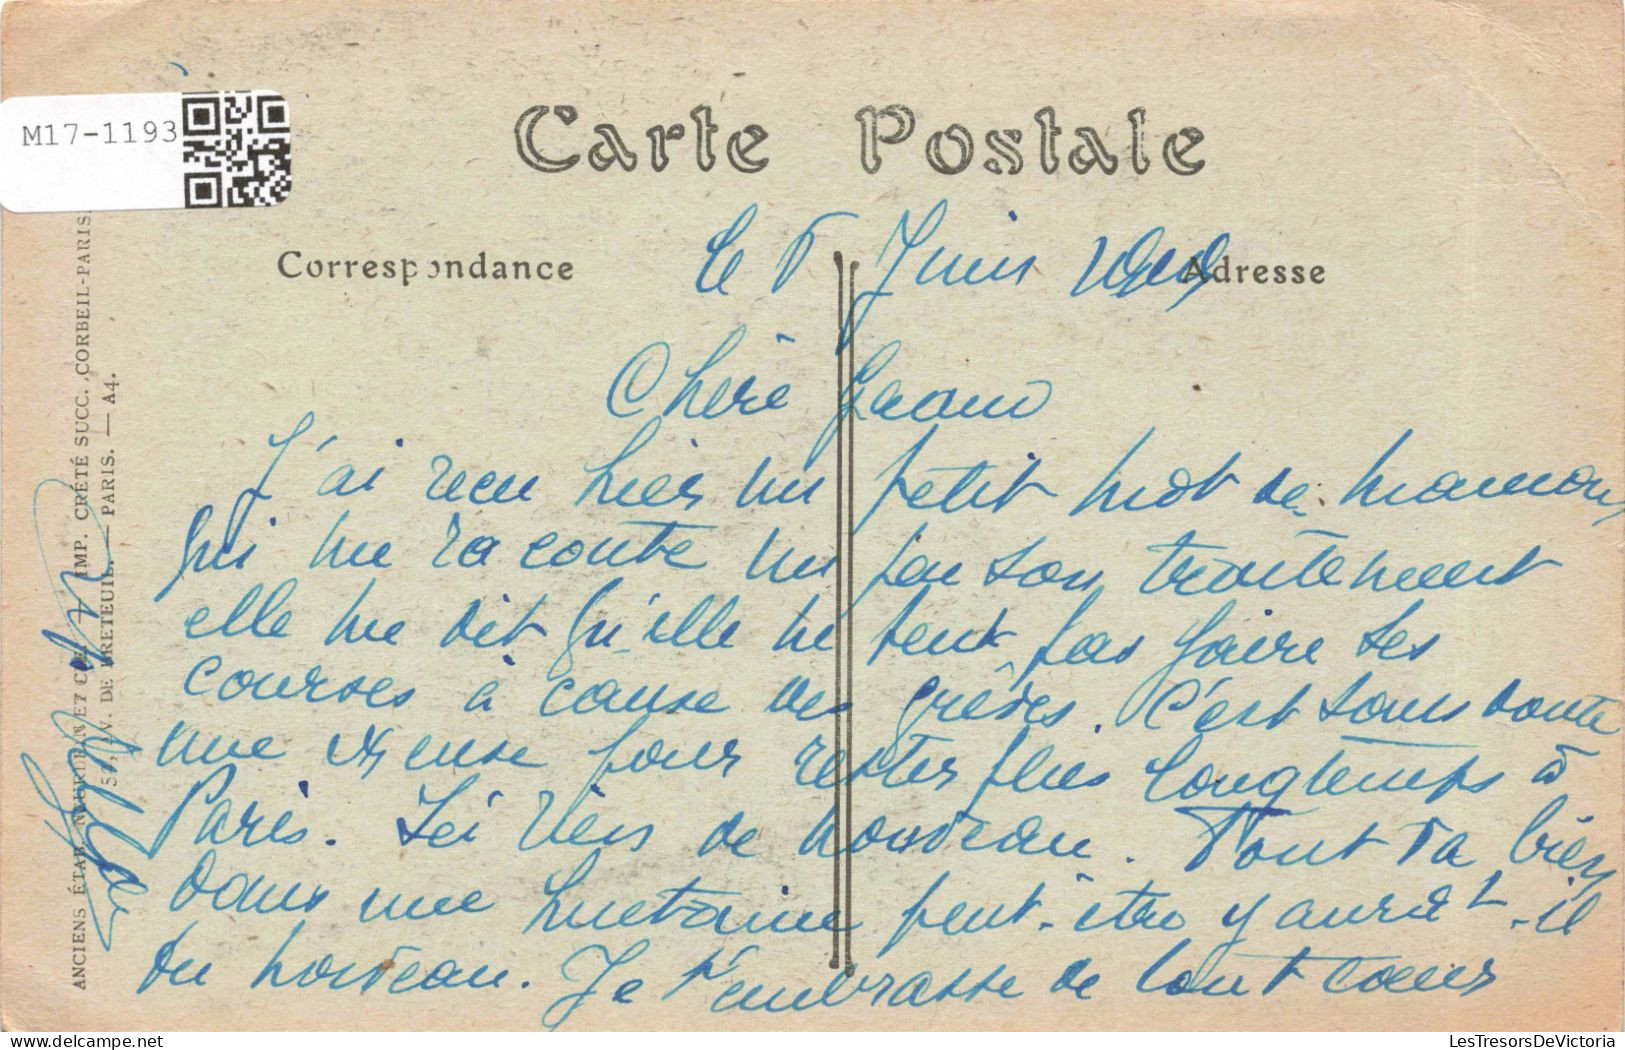 M17-1193
Carte Postale
Correspondance
Adresse
Le Juin
Chère
J'ai recu hier un petit mot de maman
qui me raconte un peu son traitement
elle me dit qu'elle ne peut pas faire ses
courses à cause des grèves. C'est sans doute
une excuse pour rester plus longtemps à
Paris. Ici rien de nouveau. Tout va bien
dans une huitaine peut-être y aura t-il
du nouveau. Je t'embrasse de tout coeur
ANCIENS ÉTAB. NEURDEIN ET CIE — IMP. CRÉTÉ SUCC., CORBEIL-PARIS
52, AV. DE BRETEUIL. — PARIS. — A4.
LesTresorsDeVictoria